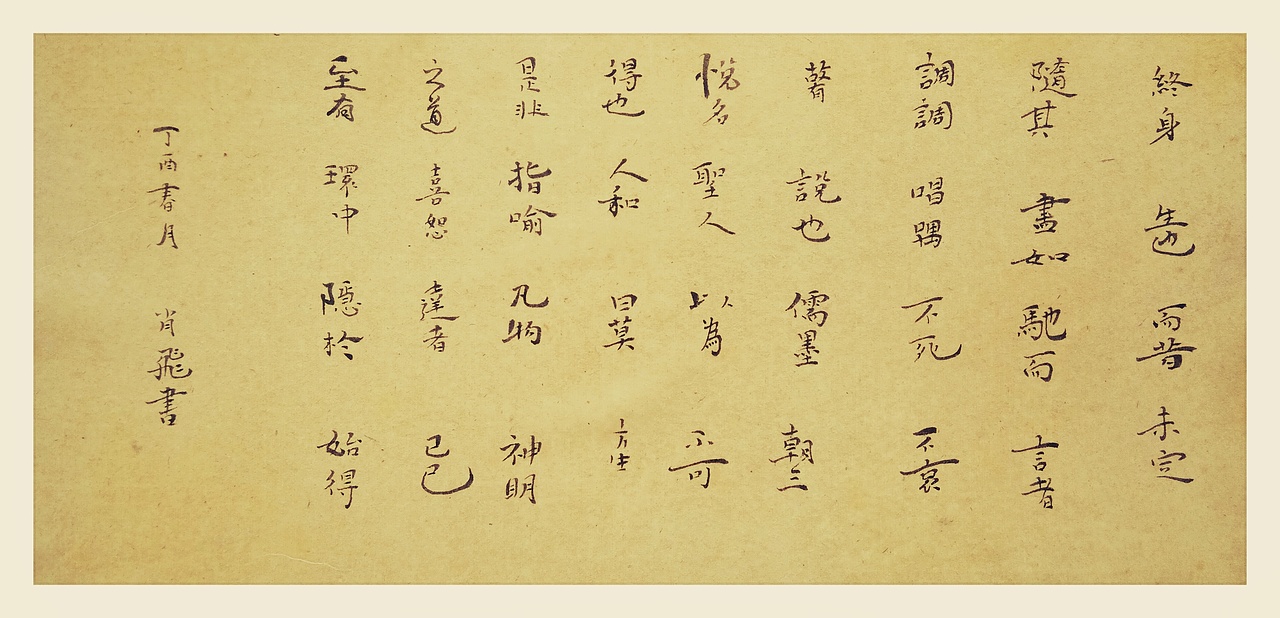 終身 先也 而昔 未定
隨其 盡如 馳而 言者
調調 唱喁 不死 不哀
瞽 說也 儒墨 朝三
悅名 聖人 以為 不可
得也 人和 曰莫 方生
是非 指喻 凡物 神明
之道 喜怒 達者 已已
至有 環中 隱於 始得
丁酉春月 肖飛書